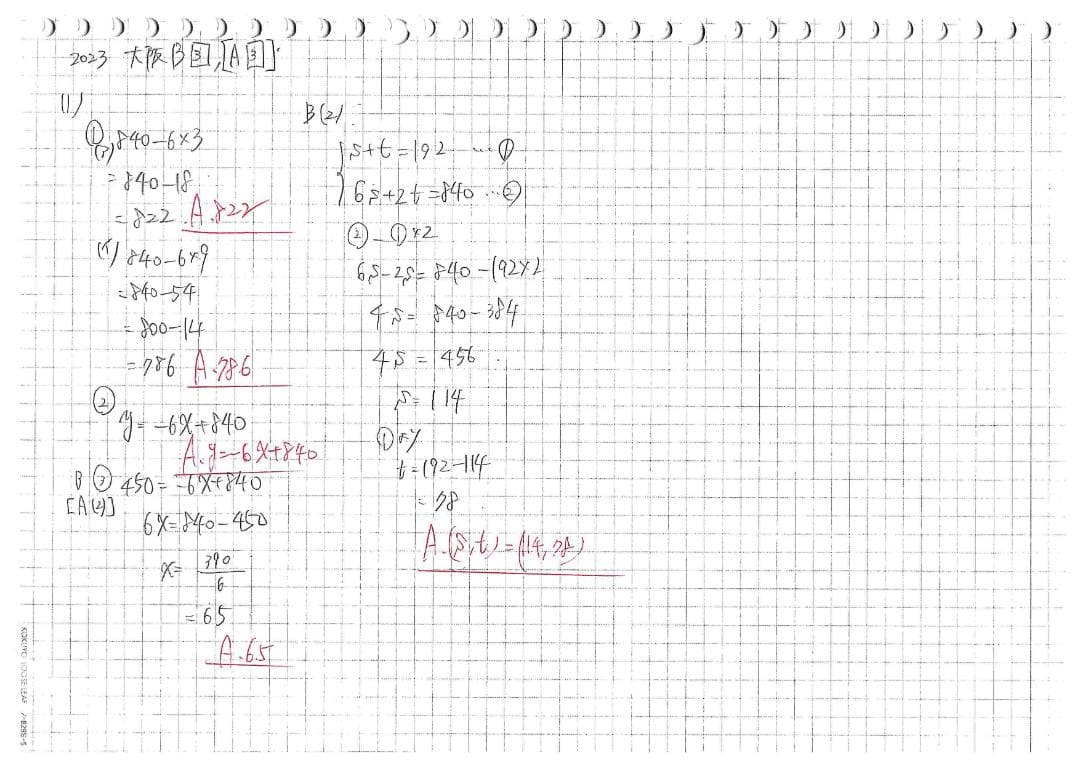 2023 大阪B[3],[A[3]]
(1)
① (ア) 840-6×3
=840-18
=822 A.822
(イ) 840-6×9
=840-54
=800-14
=786 A.786
②
y=-6x+840
A.y=-6x+840
B③ 450=-6x+840
[A(2)]
6x=840-450
x=390/6
=65
A.65
B(2)
{s+t=192 …①
6s+2t=840 …②
②-①×2
6s-2s=840-192×2
4s=840-384
4s=456
s=114
①より
t=192-114
=78
A.(s,t)=(114,78)
KOKUYO LOOSE-LEAF